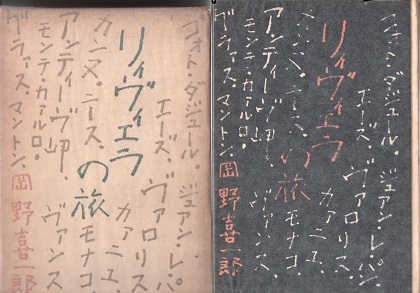 コォト・ダジュール・
ジュアン・レ・パン
エーズ、ヴァロリス
リィヴィエラの旅
カァニュ
カンヌ、ニース、
モナコ、
アンティーヴ岬、
ヴァンス
モンテ・カァルロ。
グラァス、マントン、
岡野喜一郎
コォト・ダジュール・
ジュアン・レ・パン
エーズ、ヴァロリス
リィヴィエラの旅
カァニュ
カンヌ、ニース、
モナコ、
アンティーヴ岬、
ヴァンス
モンテ・カァルロ。
グラァス、マントン、
岡野喜一郎